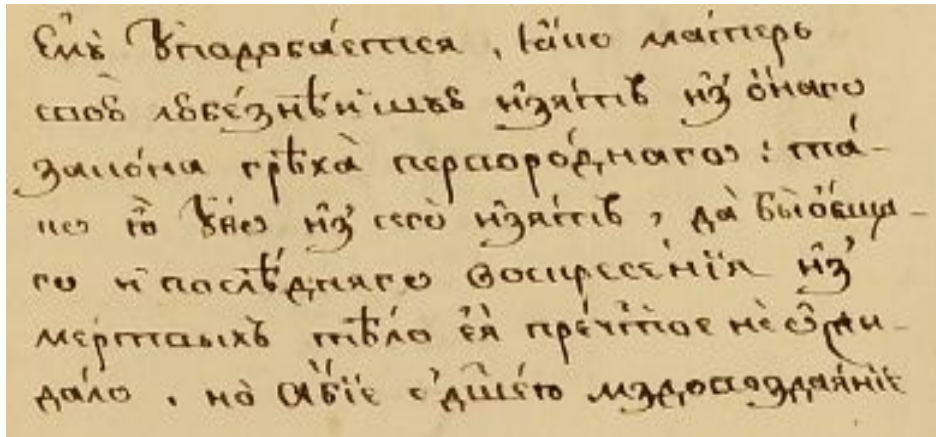 Ємꙋ̀ ᲂу҆подоба́етсѧ, ꙗ҆́кѡ ма́терь
свою̀ любе́знѣйшꙋю и҆з̾ѧ́тъ и҆з̾ о҆́наго
зако́на грѣха̀ перворо́днагѡ: та́-
кѡ ю҆̀ ᲂу҆́бѡ и҆з̾ сегѡ̀ и҆з̾ѧ́тъ, да̀ бы ѻ҆́бща-
го и҆ послѣ́днѧго воскресе́нїѧ и҆з̾
ме́ртвыхъ тѣ́ло є҆ѧ̀ пречⷭ҇тое не ѡ҆жи-
да́ло, но̀ а҆́бїе с̾ дш҃е́ю мздовоздаѧ́нїе